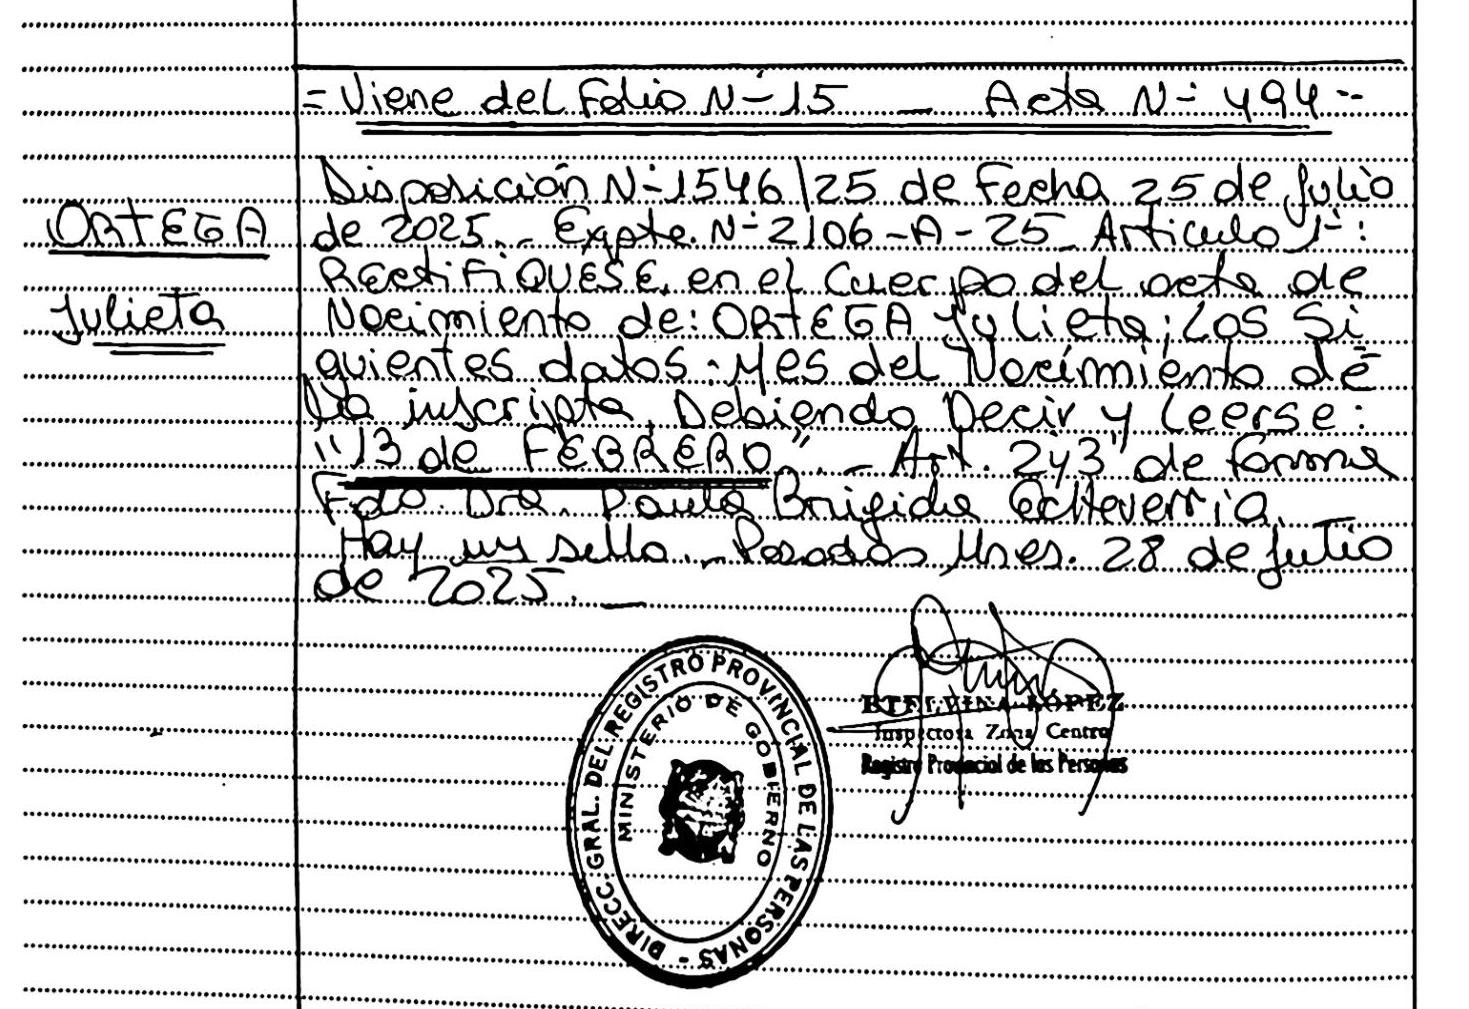 = Viene del Folio N- 15 _ Acta N- 494 --
Disposición N- 1546/25 de Fecha 25 de Julio
ORTEGA
de 2025._ Expte. N- 2106-A-25_ Articulo 1-:
RECtiFiQUESE, en el Cuerpo del acta de
Julieta
Nacimiento de: ORTEGA Julieta; Los Si
guientes datos: Mes del Nacimiento de
La inscripta, Debiendo Decir y Leerse:
"13 de FEBRERO". - Art. 2y3" de forma
Fdo. Dra. Paula Brigida Echeverria.
Hay un sello._ Posadas Mnes. 28 de Julio
de 2025. _
DIRECC. GRAL. DEL REGISTRO PROVINCIAL DE LAS PERSONAS -
MINISTERIO DE GOBIERNO
ETELVINA LOPEZ
Inspectora Zona Centro
Registro Provincial de las Personas